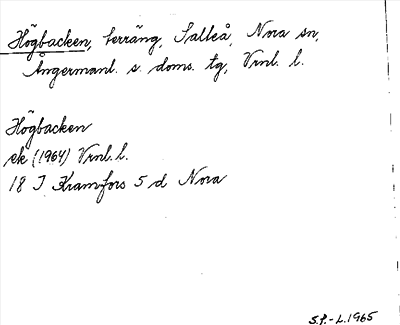 Högbacken, terräng, Salteå, Nora sn,
Ångermanl. s. doms. tg, Vrnl. l.
Högbacken
ek (1964) Vrnl. l.
18 I Kramfors 5 d Nora
S.P.-L.1965